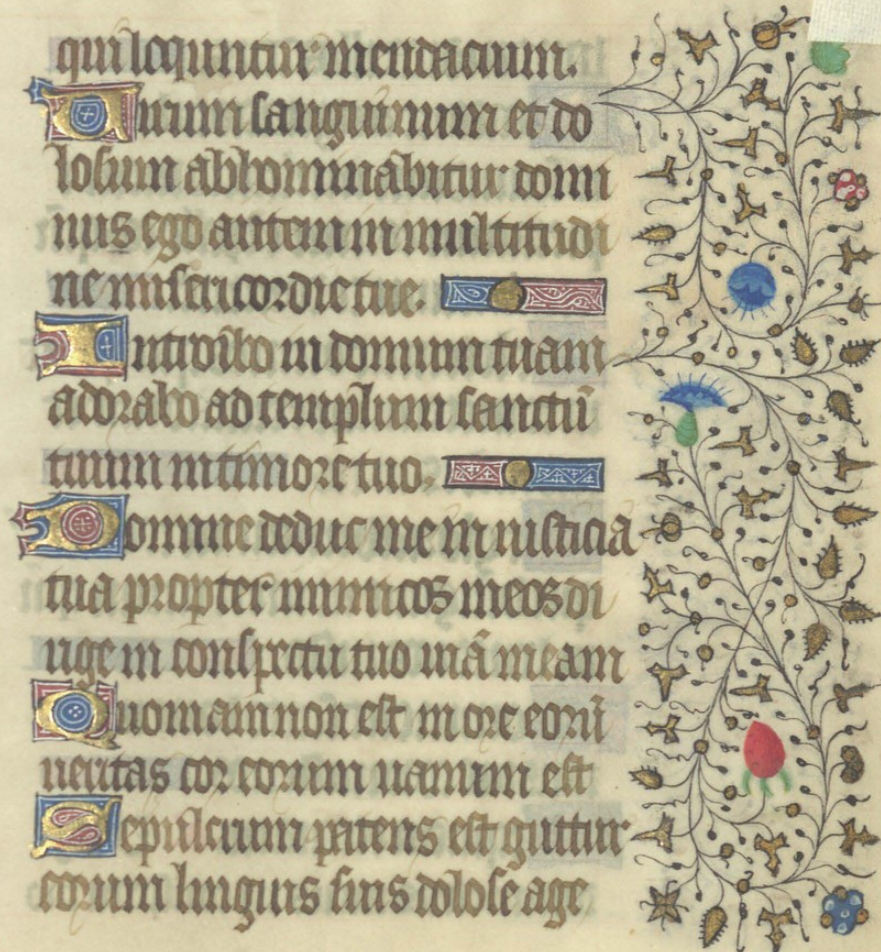 qui locuntur mendacium.
Uirum sanguinum et do
losum abhominabitur domi
nus ego autem in multitudi
ne misericordie tue.
Introibo in domum tuam
adorabo ad templum sanctū
tuum in timore tuo.
Domine deduc me in iusticia
tua propter inimicos meos di
rige in conspectu tuo uiā meam
Quoniam non est in ore eorū
ueritas cor eorum uanum est
Sepulcrum patens est guttur
eorum linguis suis dolose age